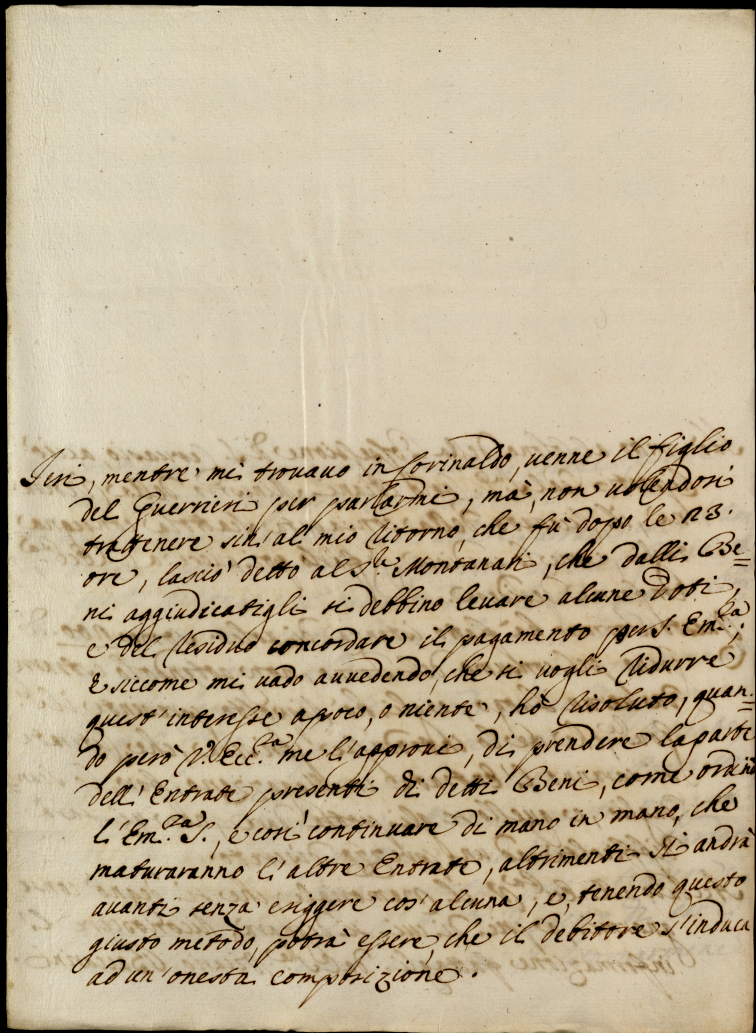 Ieri, mentre mi trovavo in Corinaldo, venne il figlio
del Guerrieri per parlarmi, mà, non volendosi
trattenere sin' al mio ritorno, che fù dopo le 23.
ore, lasciò detto al S.r Montanari, che dalli Be=
ni aggiudicatigli si debbino levare alcune Doti,
e del residuo concordare il pagamento per S. Em.za;
E siccome mi vado avvedendo, che si vogli ridurre
quest' interesse a poco, o niente, hò risoluto, quan=
do però V. Ecc.za me l' approvi, di prendere la parte
dell' Entrate presenti di detti Beni, come ordinò
l' Em.za S., e così continuare di mano in mano, che
maturaranno l' altre Entrate, altrimenti si andrà
avanti senza esiggere cos' alcuna, e, tenendo questo
giusto metodo, potrà essere, che il debitore s' induca
ad un' onesta composizione.